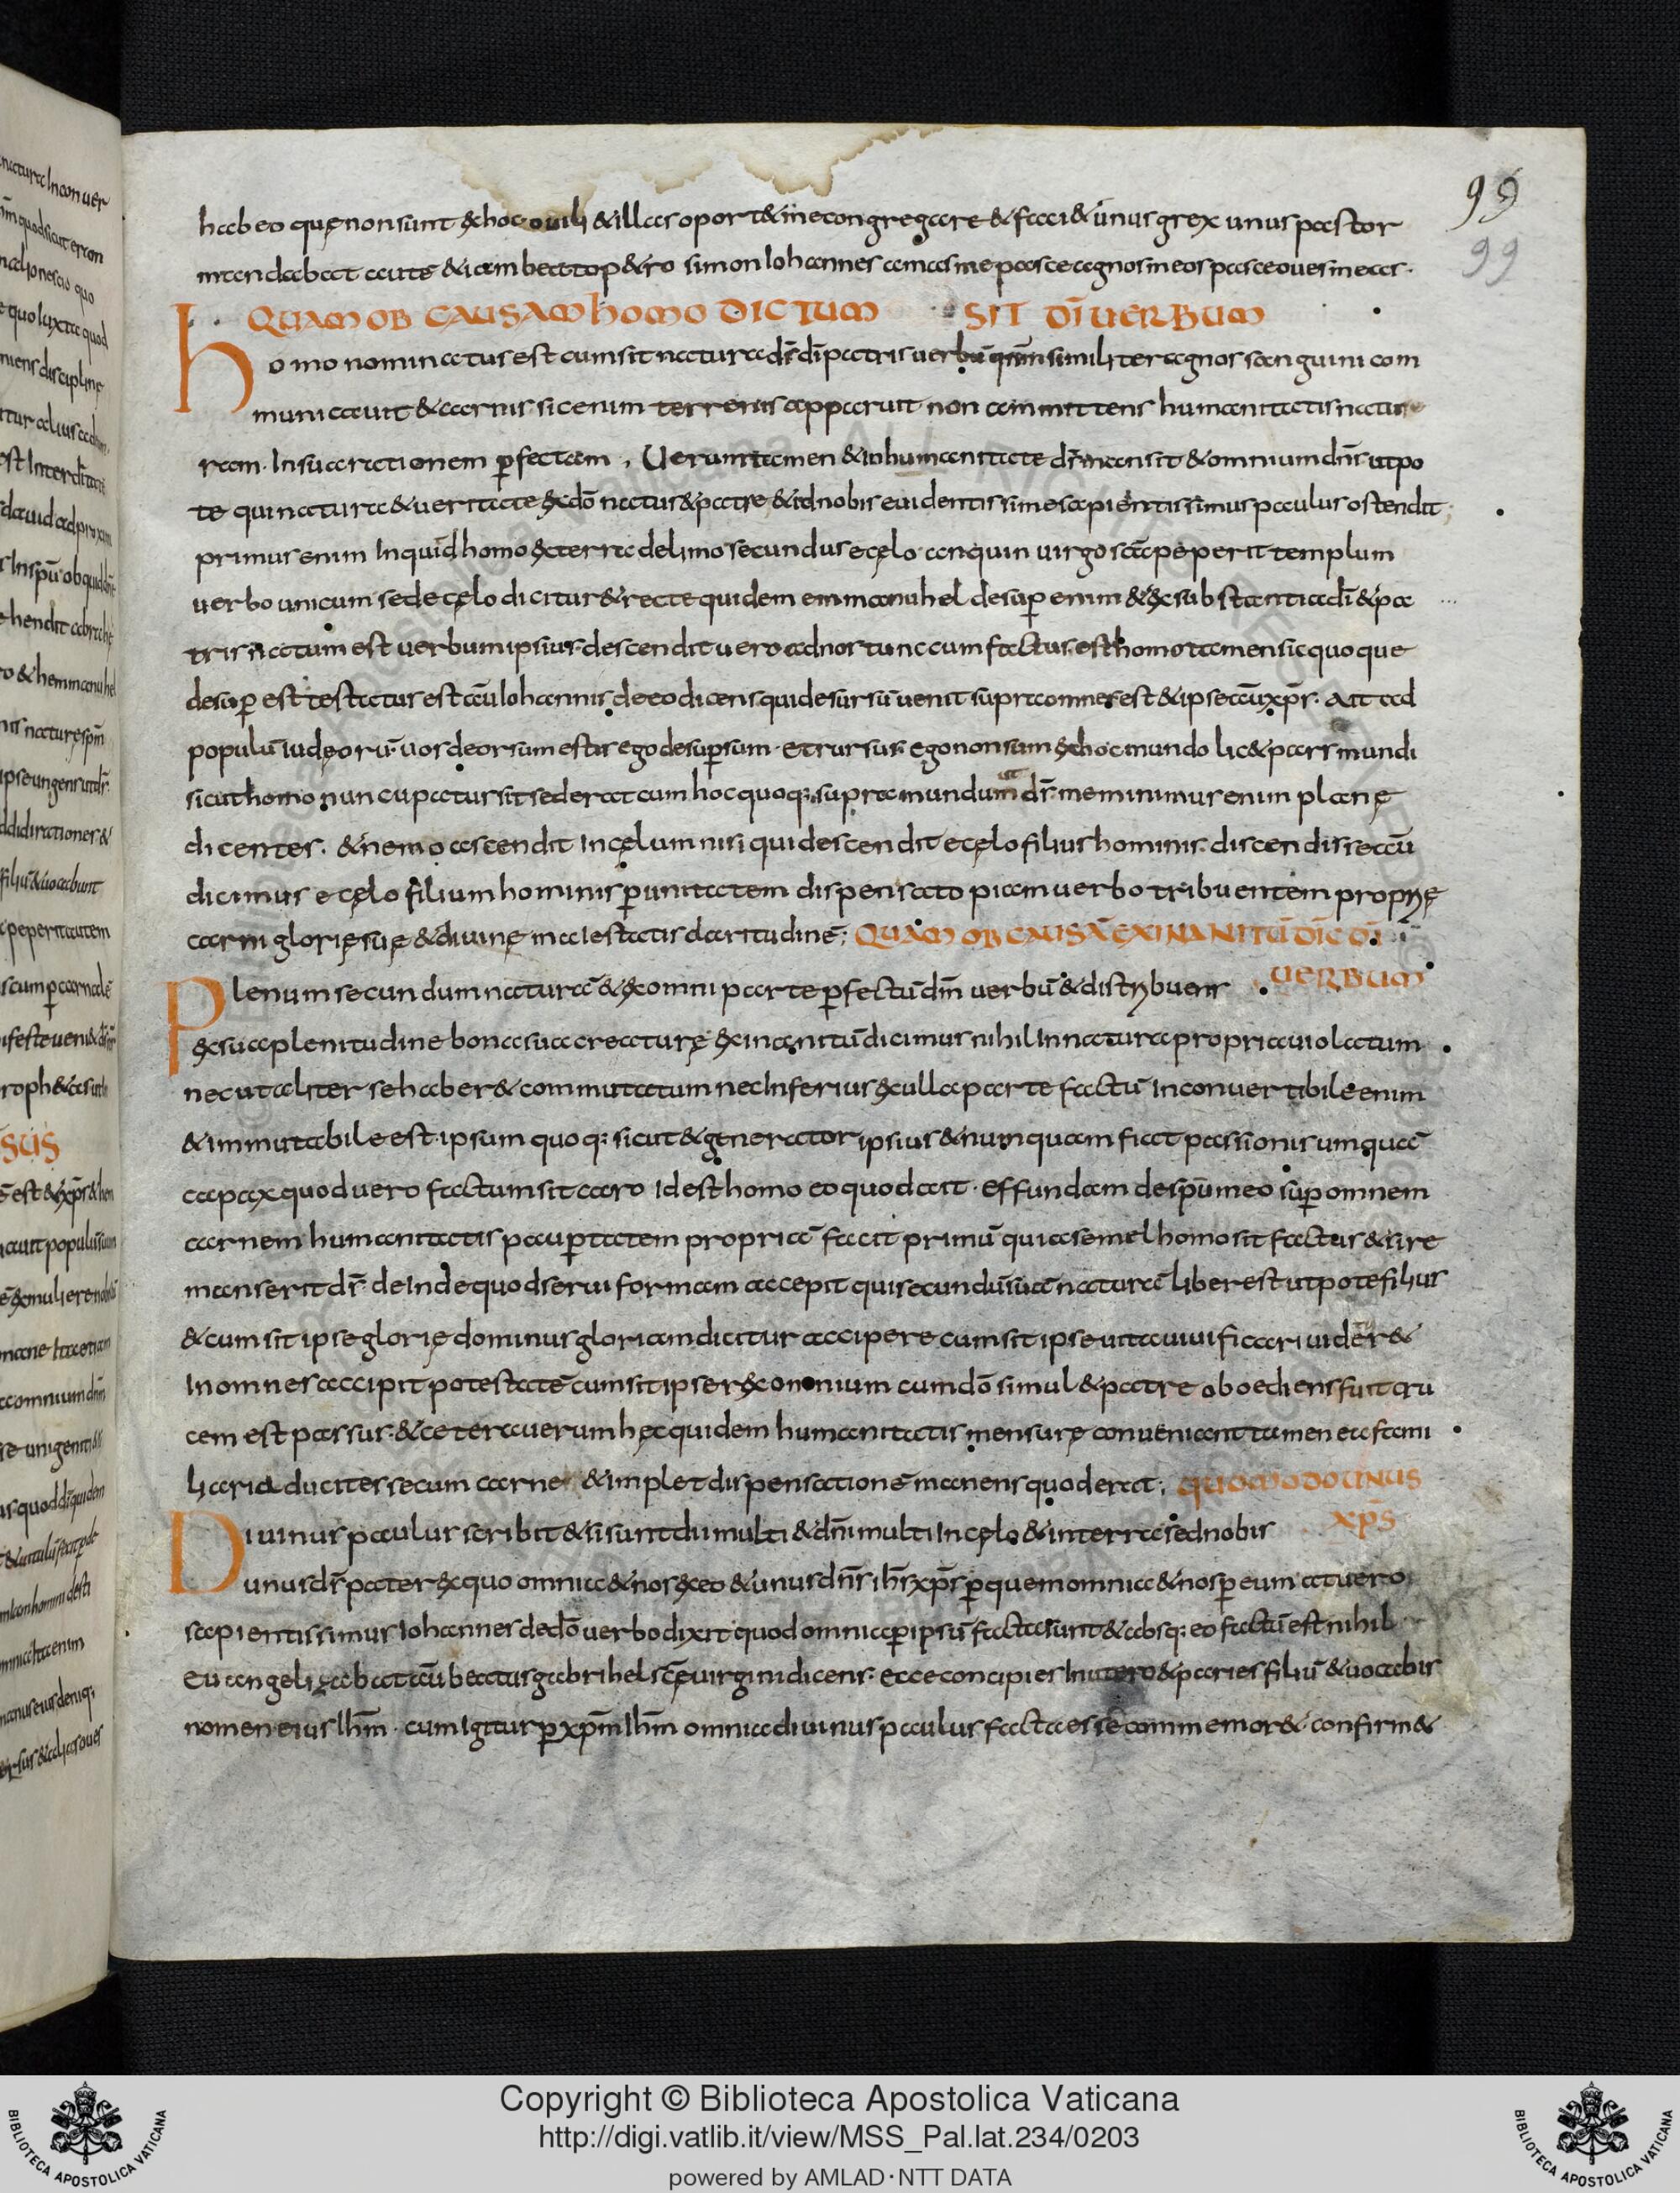 99
99
habeo quę non sunt & hoc ouili & illas oport& me congregare & faci& unus grex unus pastor
mandabat aute & iam beato p&ro simon Iohannes amas me pasce agnos meos pasce oues meas.
QUAM OB CAUSAM hOMO DICTUM SIT DĪ UERBUM
homo nominatus est cum sit natura dr̄ dī patris uerbū qnm̄ similiter agnos sanguini com
municauit & carnis sic enim terrenis apparuit non ammittens humanitatis natu
ram. In sua ratione perfectam. Uerumtamen & in humanitate dr̄ mansit & omnium dn̄s utpo
te qui natura & ueritate & dō natus & patre & id nobis euidentissime sapientissimus paulus ostendit;
primus enim Inquid homo & terra de limo secundus e cęlo. anquin uirgo scā peperit templum
uerbo unicum sed e cęlo dicitur & recte quidem emmanuhel desuꝑ enim & ex substantia dī & pa
tris natum est uerbum ipsius. descendit uero ad nos tunc cum factus est homo tamen sic quoque
desuꝑ est testatus est aū Iohannis de eo dicens qui desursū uenit supra omnes est & ipse aū xp̄s. Ait ad
populū iudęorū uos deorsum estis ego desuꝑ sum. et rursus ego non sum & hoc mundo lic& pars mundi
sicut homo nuncupatur sit sed erat cum hoc quoq; supra mundum ut dr̄. meminimus enim planę
dicentes. & nemo ascendit In cęlum nisi qui descendit e cęlo filius hominis. discendisse aū
dicimus e cęlo filium hominis ꝑ unitatem dispensatopiam uerbo tribuentem proprię
carni glorię suę & diuinę maIestatis claritudinē; QUAM OB CAUSĀ EXINANITŪ DIC DĪ
UERBUM
Plenum secundum naturā & ex omni parte ꝑfectū dīn uerbū & distribuens
ex sua plenitudine bona sua creaturę exinanitū dicimus nihil In natura propria uiolatum
nec ut aliter se haber& commutatum nec Inferius ex ulla parte factū Inconuertibile enim
& immutabile est. ipsum quoq; sicut & generator ipsius & numquam fiat passionis umquā
capax quod uero factum sit caro Id est homo eo quod ait. effundam de spū meo suꝑ omnem
carnem humanitatis pauꝑtatem propriā facit primū quia semel homo sit factus & si re
manserit dr̄. deInde quod serui formam accepit qui secundū suā naturā liber est utpote filius
& cum sit ipse glorię dominus gloriam dicitur accipere cum sit ipse uita uiuificari uider&
In omnes accipit potestatē cum sit ipse rex omnium cum dō simul & patre oboediens fuit cru
cem est passus. & cetera uerum hęc quidem humanitatis mensurę conueniant tamen ea fami
liaria ducit essecum carne & implet dispensationē manens quod erat; QUOMODO UNUS
XP̄S
Diuinus paulus scribit & si sunt dii multi & dn̄i multi In cęlo & in terra sed nobis
unus dr̄ pater ex quo omnia & nos ex eo & unus dn̄s ih̄s xp̄s ꝑ quem omnia & nos ꝑ eum at uero
sapientissimus Iohannes de dō uerbo dixit quod omnia ꝑ ipsū facta sunt & absq; eo factū est nihil
Euangelizabat aū beatus gabrihel scę uirgini dicens. ecce concipies In utero & paries filiū & uocabis
nomen eius Ih̄m. cum Igitur ꝑ xp̄m Ih̄m omnia diuinus paulus facta esse commemor& confirm&
Copyright © Biblioteca Apostolica Vaticana
http://digi.vatlib.it/view/MSS_Pal.lat.234/0203
powered by AMLAD·NTT DATA
BIBLIOTECA APOSTOLICA VATICANA
BIBLIOTECA APOSTOLICA VATICANA